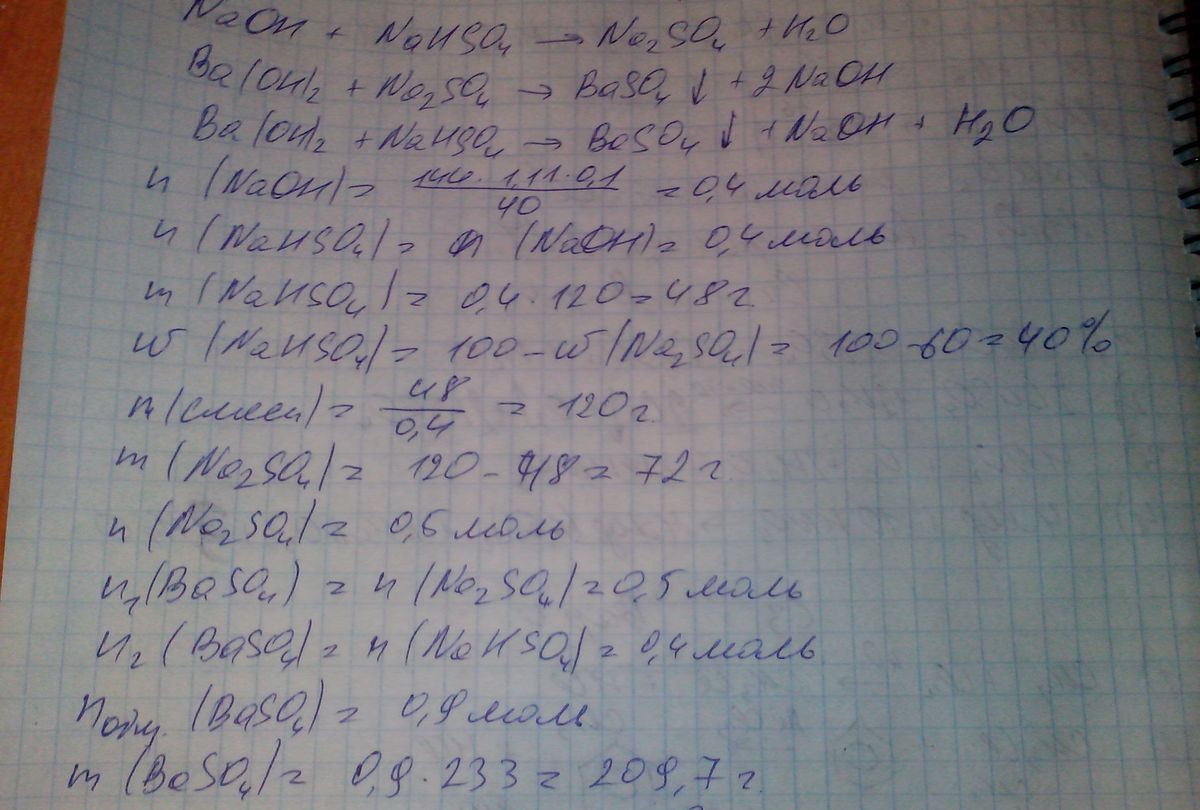 NaOH + NaHSO₄ → Na₂SO₄ + H₂O
Ba(OH)₂ + Na₂SO₄ → BaSO₄↓ + 2NaOH
Ba(OH)₂ + NaHSO₄ → BaSO₄↓ + NaOH + H₂O
n (NaOH) = 144·1,11·0,1 / 40 = 0,4 моль
n (NaHSO₄) = n (NaOH) = 0,4 моль
m (NaHSO₄) = 0,4·120 = 48 г.
w (NaHSO₄) = 100 - w (Na₂SO₄) = 100 - 60 = 40%
m (смеси) = 48 / 0,4 = 120 г.
m (Na₂SO₄) = 120 - 48 = 72 г.
n (Na₂SO₄) = 0,5 моль
n₁ (BaSO₄) = n (Na₂SO₄) = 0,5 моль
n₂ (BaSO₄) = n (NaHSO₄) = 0,4 моль
nобщ. (BaSO₄) = 0,9 моль
m (BaSO₄) = 0,9·233 = 209,7 г.